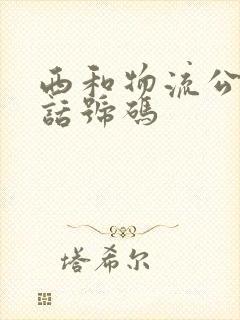 西和物流公
話號碼
塔希尔